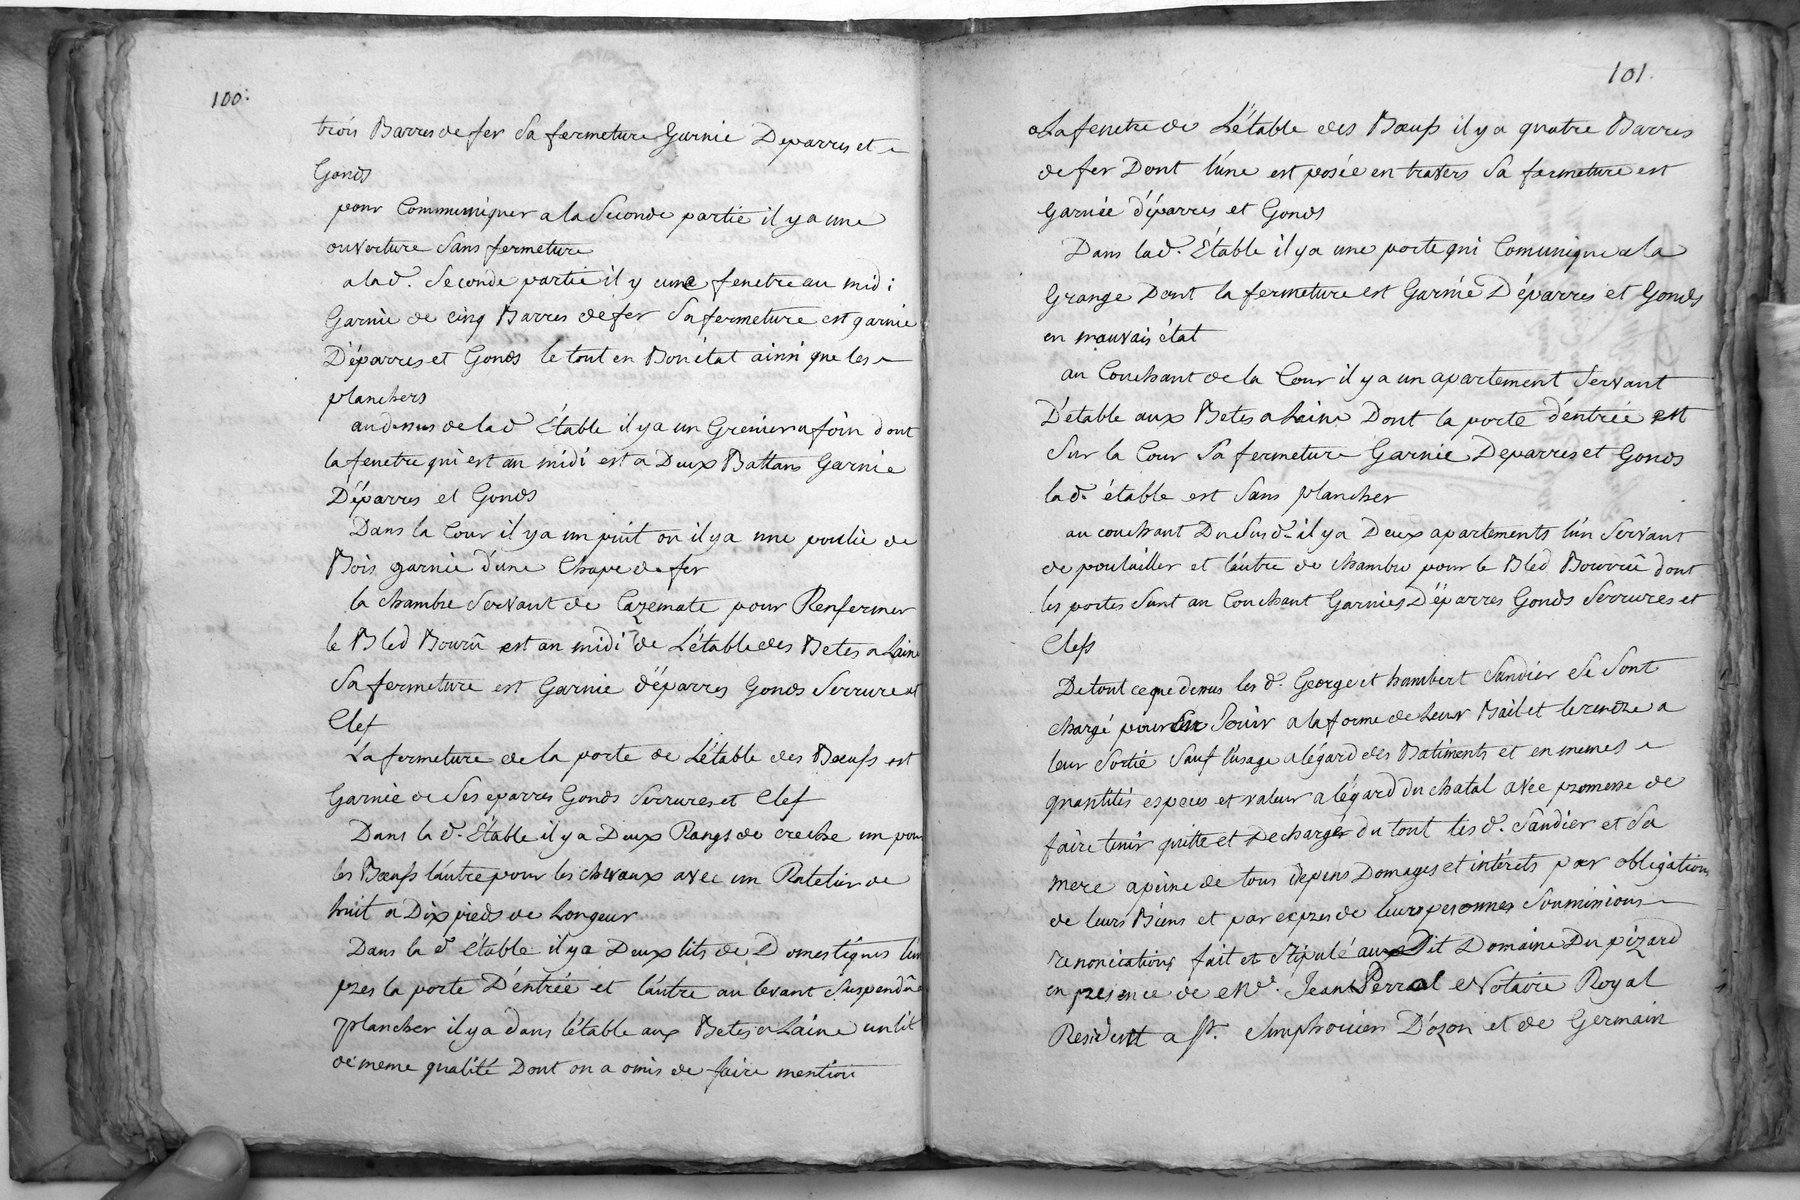 100.
trois Barres de fer Sa fermeture Garnie Deparres et
Gonds
pour Communiquer a la Seconde partie il y a une
ouverture Sans fermeture
a lad. Seconde partie il y a une fenetre au midi
Garnie de cinq Barres de fer Sa fermeture est garnie
D'éparres et Gonds le tout en Bon état ainsi que les
planchers
au dessus de lad. Étable il y a un Grenier a foin dont
la fenetre qui est au midi est a Deux Battans Garnie
D'éparres et Gonds
Dans la Cour il y a un puit ou il y a une poulie de
Bois garnie d'une Chape de fer
la chambre Servant de Cazemate pour Renfermer
le Bled Bourrû est au midi de L'étable des Betes a Laine
Sa fermeture est Garnie d'éparres Gonds Serrure et
Clef
La fermeture de la porte de L'étable des Bœufs est
Garnie de Ses eparres Gonds Serrures et Clef
Dans lad. Étable il y a Deux Rangs de creche un pour
les Bœufs l'autre pour les chevaux avec un Ratelier de
huit a Dix pieds de Longeur
Dans lad étable il y a Deux lits de Domestiques l'un
pres la porte D'éntrée et l'autre au levant Suspendû
plancher il y a dans l'étable aux Betes a Laine un lit
de meme qualité Dont on a omis de faire mention
101.
a La fenetre de L'étable des Bœufs il y a quatre Barres
de fer Dont l'une est posée en travers Sa fermeture est
garnie d'éparres et Gonds
Dans lad. Étable il y a une porte qui Comunique a la
Grange Dont la fermeture est Garnie D'éparres et Gonds
en mauvais état
au Couchant de la Cour il y a un apartement Servant
D'etable aux Betes a Laine Dont la porte d'éntrée est
Sur la Cour Sa fermeture Garnie Deparres et Gonds
lad. étable est Sans plancher
au couchant Du Sus d. il y a Deux apartements l'un Servant
de poulailler et l'autre de chambre pour le Bled Bourrû dont
les portes Sont au Couchant Garnies D'éparres Gonds Serrures et
Clefs
De tout ce que dessus les d. George et hambert Sandier Se Sont
chargé pour En Jouir a la forme de Leur Bail et le rendre a
leur Sortie Sauf l'usage a légard des Batiments et en memes
quantités especes et valeur a légard du chatal avec promesse de
faire tenir quitte et Decharger du tout les d. Sandier et Sa
mere apeine de tous depens Domages et intérets par obligation
de leurs Biens et par exprès de leurs personnes Soumissions
renonciations fait et Stipulé audit Domaine Du pizard
en presence de Jean Perral Notaire Royal
Resident a St. Simphorien D'ozon et de Germain